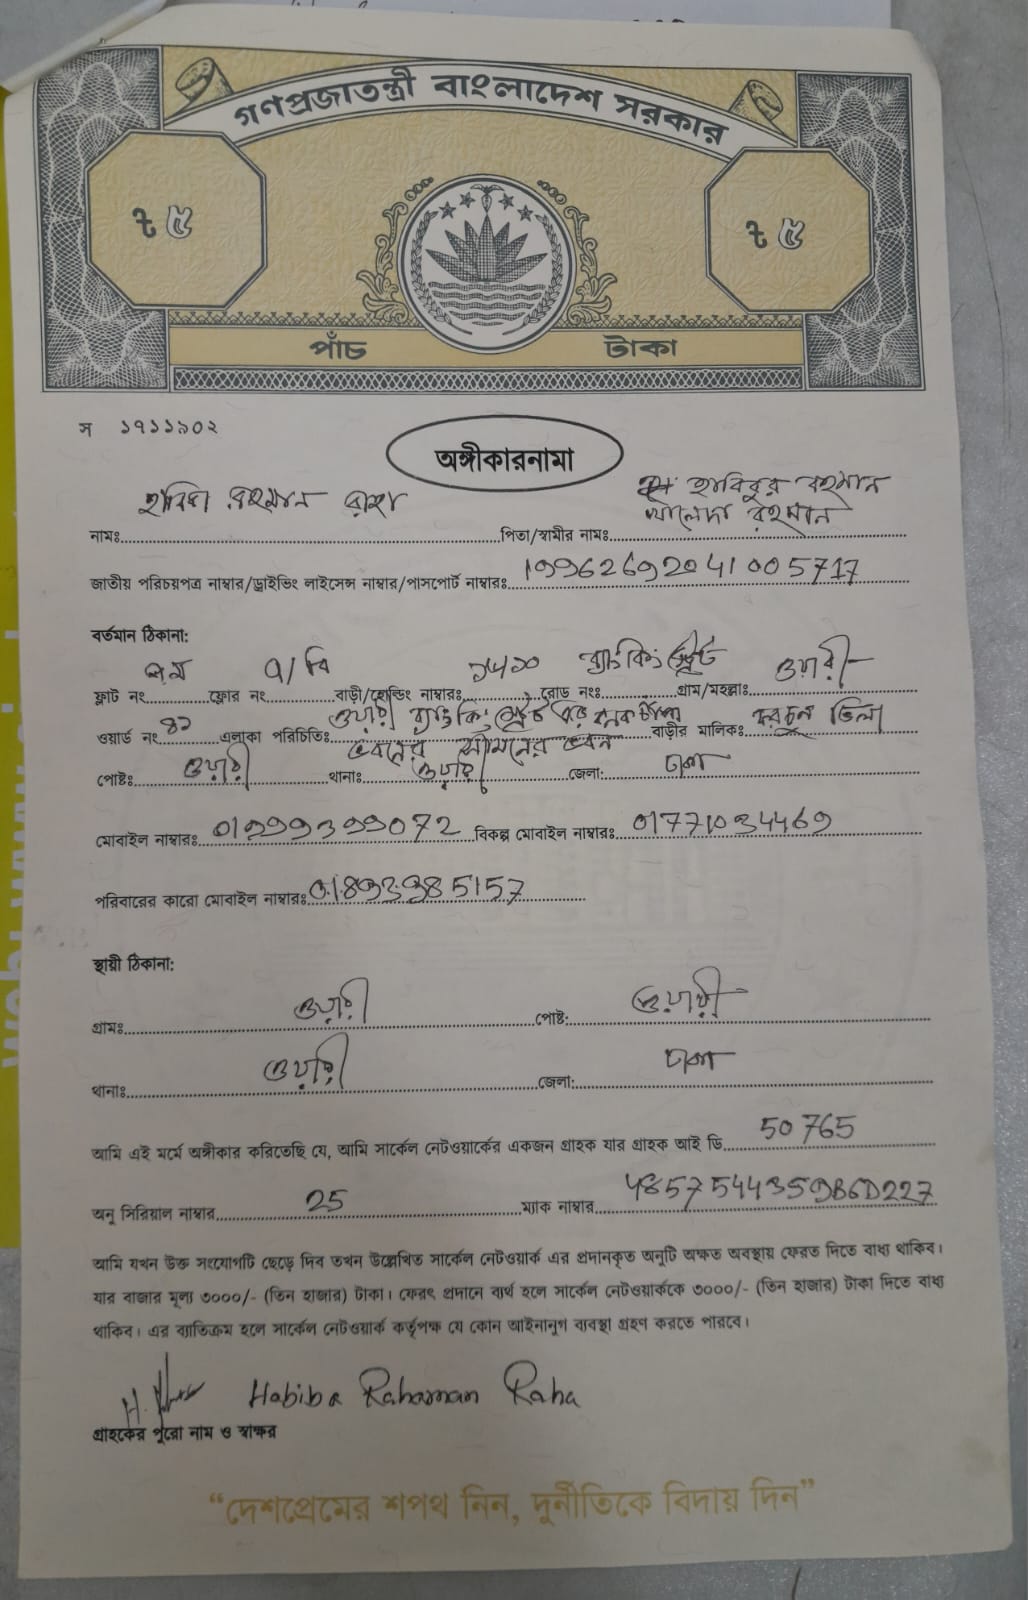 গণপ্রজাতন্ত্রী বাংলাদেশ সরকার
৳ ৫ ৳ ৫
পাঁচ টাকা
স ১৭১১৯০২
অঙ্গীকারনামা
হাবিবা রহমান রাহা হাবিবুর রহমান
খালেদা রহমান
নামঃ পিতা/স্বামীর নামঃ
জাতীয় পরিচয়পত্র নাম্বার/ড্রাইভিং লাইসেন্স নাম্বার/পাসপোর্ট নাম্বারঃ 19962692041005717
বর্তমান ঠিকানা:
৭ম ৭/বি ব্যাংকিং স্ট্রীট ওয়ারী
ফ্লাট নং ফ্লোর নং বাড়ী/হোল্ডিং নাম্বারঃ রোড নংঃ গ্রাম/মহল্লাঃ
ওয়ার্ড নং ৪১ এলাকা পরিচিতিঃ ওয়ারী ব্যাংকিং স্ট্রীট বাড়ীর মালিকঃ ভিলা
ভবনের ভবন
পোষ্টঃ ওয়ারী থানাঃ ওয়ারী জেলা: ঢাকা
মোবাইল নাম্বারঃ 01999399072 বিকল্প মোবাইল নাম্বারঃ 01771034469
পরিবারের কারো মোবাইল নাম্বারঃ 01893985157
স্থায়ী ঠিকানা:
গ্রামঃ ওয়ারী পোষ্ট: ওয়ারী
থানাঃ ওয়ারী জেলা: ঢাকা
আমি এই মর্মে অঙ্গীকার করিতেছি যে, আমি সার্কেল নেটওয়ার্কের একজন গ্রাহক যার গ্রাহক আই ডি 50765
অনু সিরিয়াল নাম্বার 25 ম্যাক নাম্বার 4857544359B6D227
আমি যখন উক্ত সংযোগটি ছেড়ে দিব তখন উল্লেখিত সার্কেল নেটওয়ার্ক এর প্রদানকৃত অনুটি অক্ষত অবস্থায় ফেরত দিতে বাধ্য থাকিব।
যার বাজার মূল্য ৩০০০/- (তিন হাজার) টাকা। ফেরৎ প্রদানে ব্যর্থ হলে সার্কেল নেটওয়ার্ককে ৩০০০/- (তিন হাজার) টাকা দিতে বাধ্য
থাকিব। এর ব্যাতিক্রম হলে সার্কেল নেটওয়ার্ক কর্তৃপক্ষ যে কোন আইনানুগ ব্যবস্থা গ্রহণ করতে পারবে।
Habiba Rahaman Raha
গ্রাহকের পুরো নাম ও স্বাক্ষর
“দেশপ্রেমের শপথ নিন, দুর্নীতিকে বিদায় দিন”